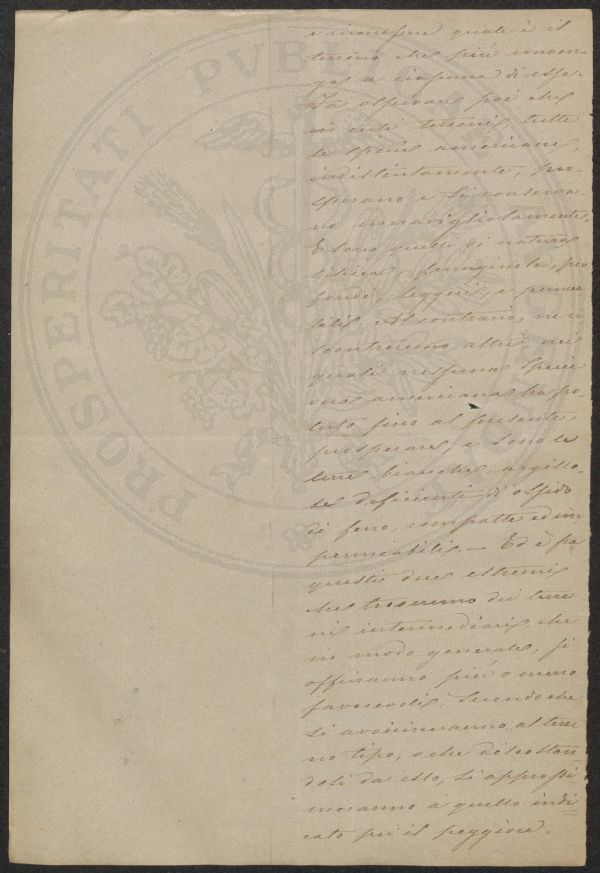 e riconoscere quale è il
terreno che più conven-
ga a ciascuna di esse.
Fa osservare poi che
in certi terreni tutte
le specie americane,
indistintamente, pro-
sperano e si conserva-
no meravigliosamente.
E sono quelli di natura
silicea, ferruginosa, pro
fondi, leggieri, e permea
bili. Al contrario, ne ri
scontreremo altri, nei
quali nessuna specie
americana ha po-
tuto, fino al presente,
prosperare, e sono le
terre bianche, argillo-
se deficienti di ossido
di ferro, compatte ed im
permeabili. — Ed è fra
questi due estremi
che troveremo dei terre
ni intermediari che
in modo generale, si
offriranno più o meno
favorevoli, secondo che
si avvicineranno al terre
no tipo, o che discostan
dosi da esso, si approssi
meranno a quello indi
cato per il peggiore.
PROSPERITATI PVBLICAE